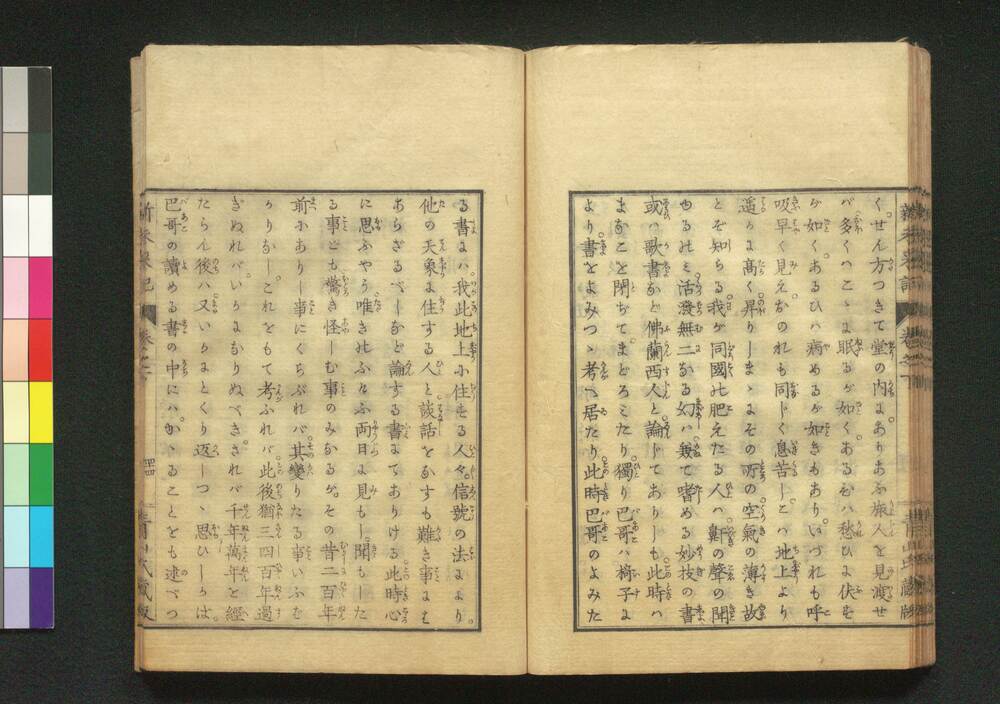 く。せん方つきて堂の内にありあふ旅人を見渡せ
バ多くハこゝに眠るが如く。あるひハ愁ひに伏せ
が如く。あるひハ病めるが如きもありいづれも呼
吸早く見え。おのれも同じく息苦し。こハ地上より
遥かに高く昇りしまゝにその所の空氣の薄き故
とぞ知らる我が同國の肥えたる人ハ鼾の聲の聞
ゆるのミ活潑無二なる幻ハ兼て嗜める妙技の書
或ハ歌書など佛蘭西人と論じてありしも此時ハ
まなこを閉ぢてまどろミたり獨り巴哥ハ椅子に
より書をよみつゝ考へ居たり此時巴哥のよみた
る書にハ。我此地上に住する人々。信號の法により。
他の天象に住する人と談話をなすも難き事にも
あらざるべしなど論ずる書にてありける此時心
に思ふやう唯きのふけふ両日に見もし聞もした
る事ども驚き怪しむ事のみなるが。その昔二百年
前にありし事にくらぶれバ其變りたる事いふば
かりなし。これをもて考ふれバ此後猶三四百年過
ぎぬれバ。いかになりぬべき。されバ千年萬年を經
たらん後ハ又いかにとくり返しつゝ思ひしかば。
巴哥の讀める書の中にハ。かゝることをも述べつ
新未來記
卷之下
青山氏藏版